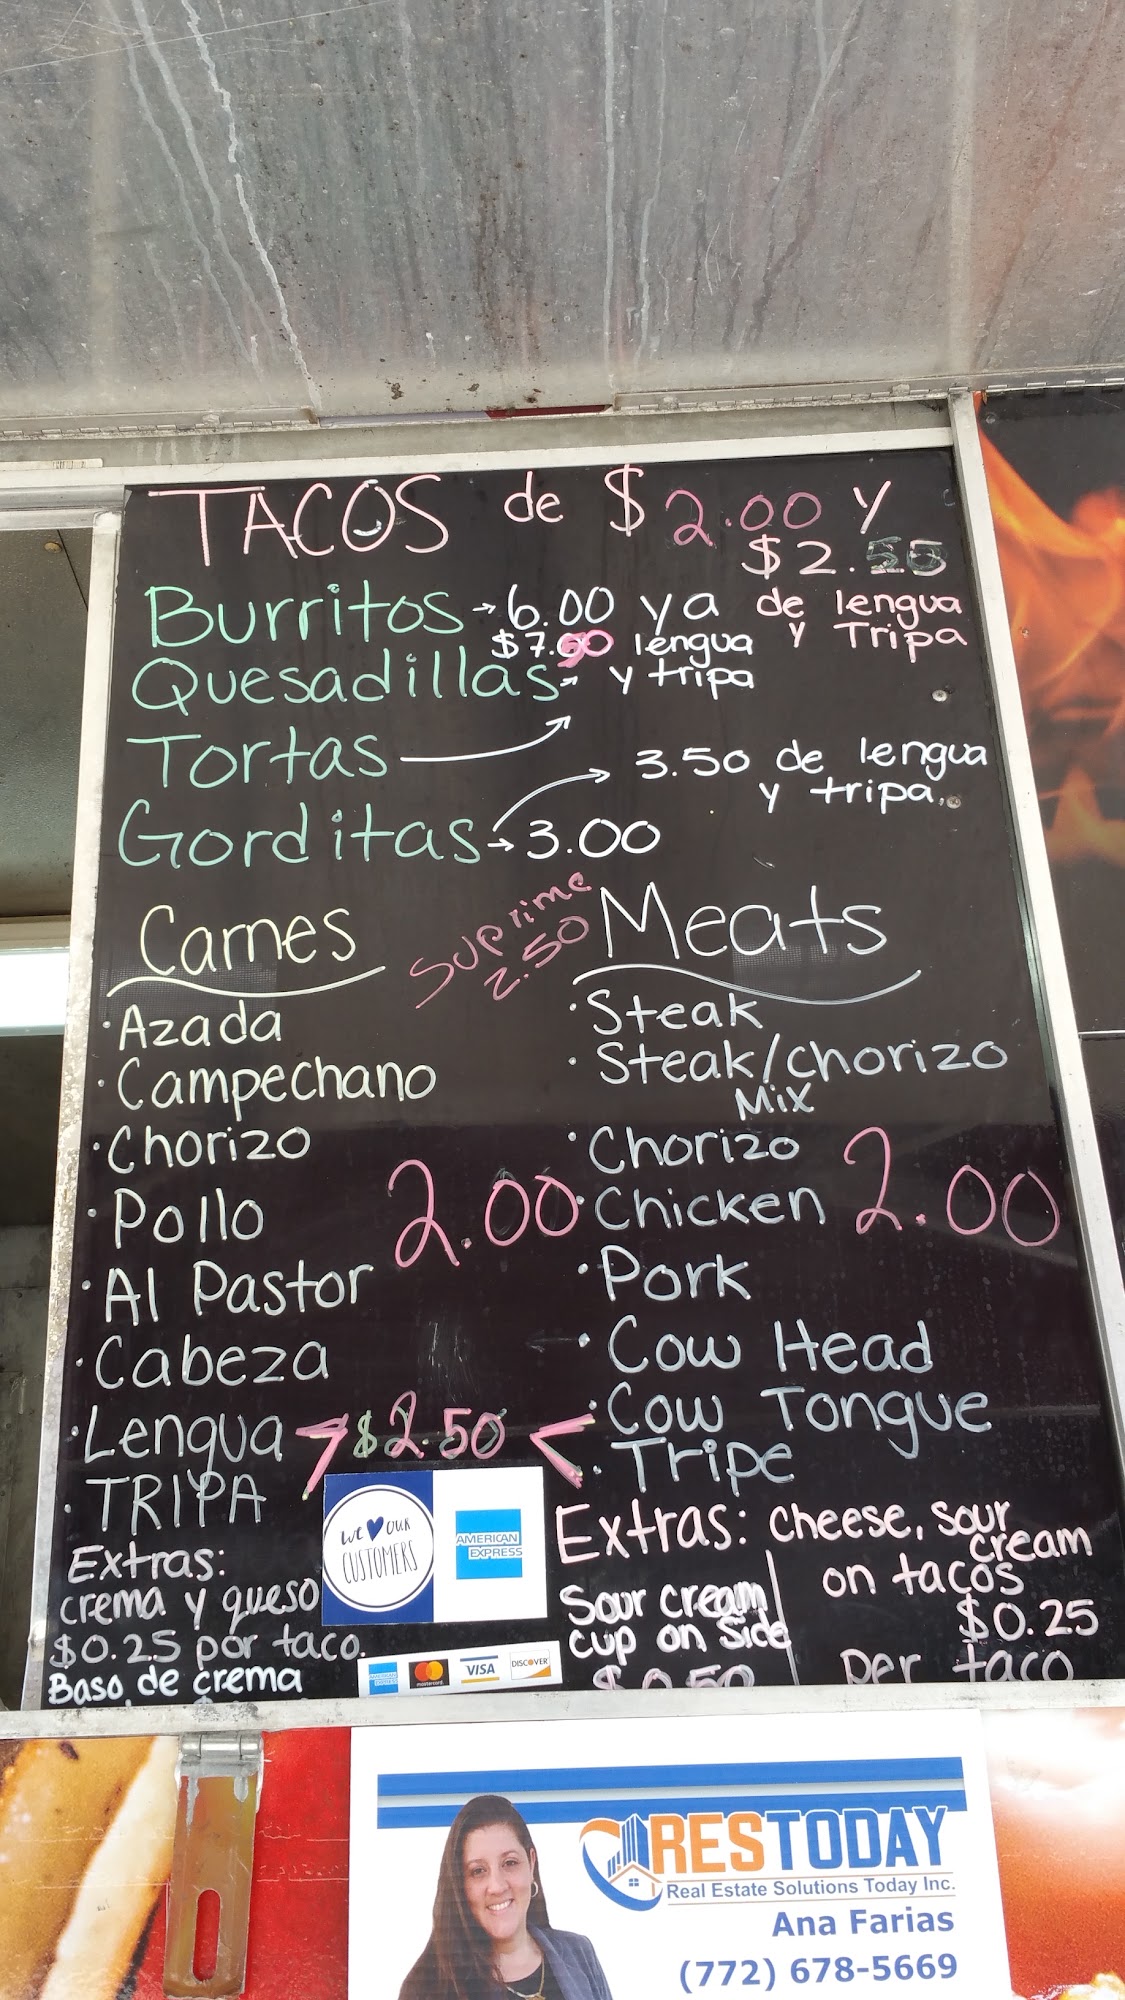 TACOS de $2.00 y
$2.50
Burritos → 6.00 ya de lengua
$7.50 lengua y Tripa
Quesadillas → y tripa
Tortas
3.50 de lengua
y tripa.
Gorditas → 3.00
Carnes
suprime
2.50
Meats
· Azada
· Campechano
· Chorizo
· Pollo
2.00
· Al Pastor
· Cabeza
· Lengua
$2.50
· TRIPA
· Steak
· Steak/chorizo
Mix
· Chorizo
· Chicken
2.00
· Pork
· Cow Head
· Cow Tongue
· Tripe
Extras:
crema y queso
$0.25 por taco.
Baso de crema
WE OUR
CUSTOMERS
AMERICAN
EXPRESS
AMERICAN
EXPRESS
mastercard
VISA
DISCOVER
Extras: cheese, sour
cream
on tacos
$0.25
per taco
Sour cream
cup on side
$0.50
RESTODAY
Real Estate Solutions Today Inc.
Ana Farias
(772) 678-5669